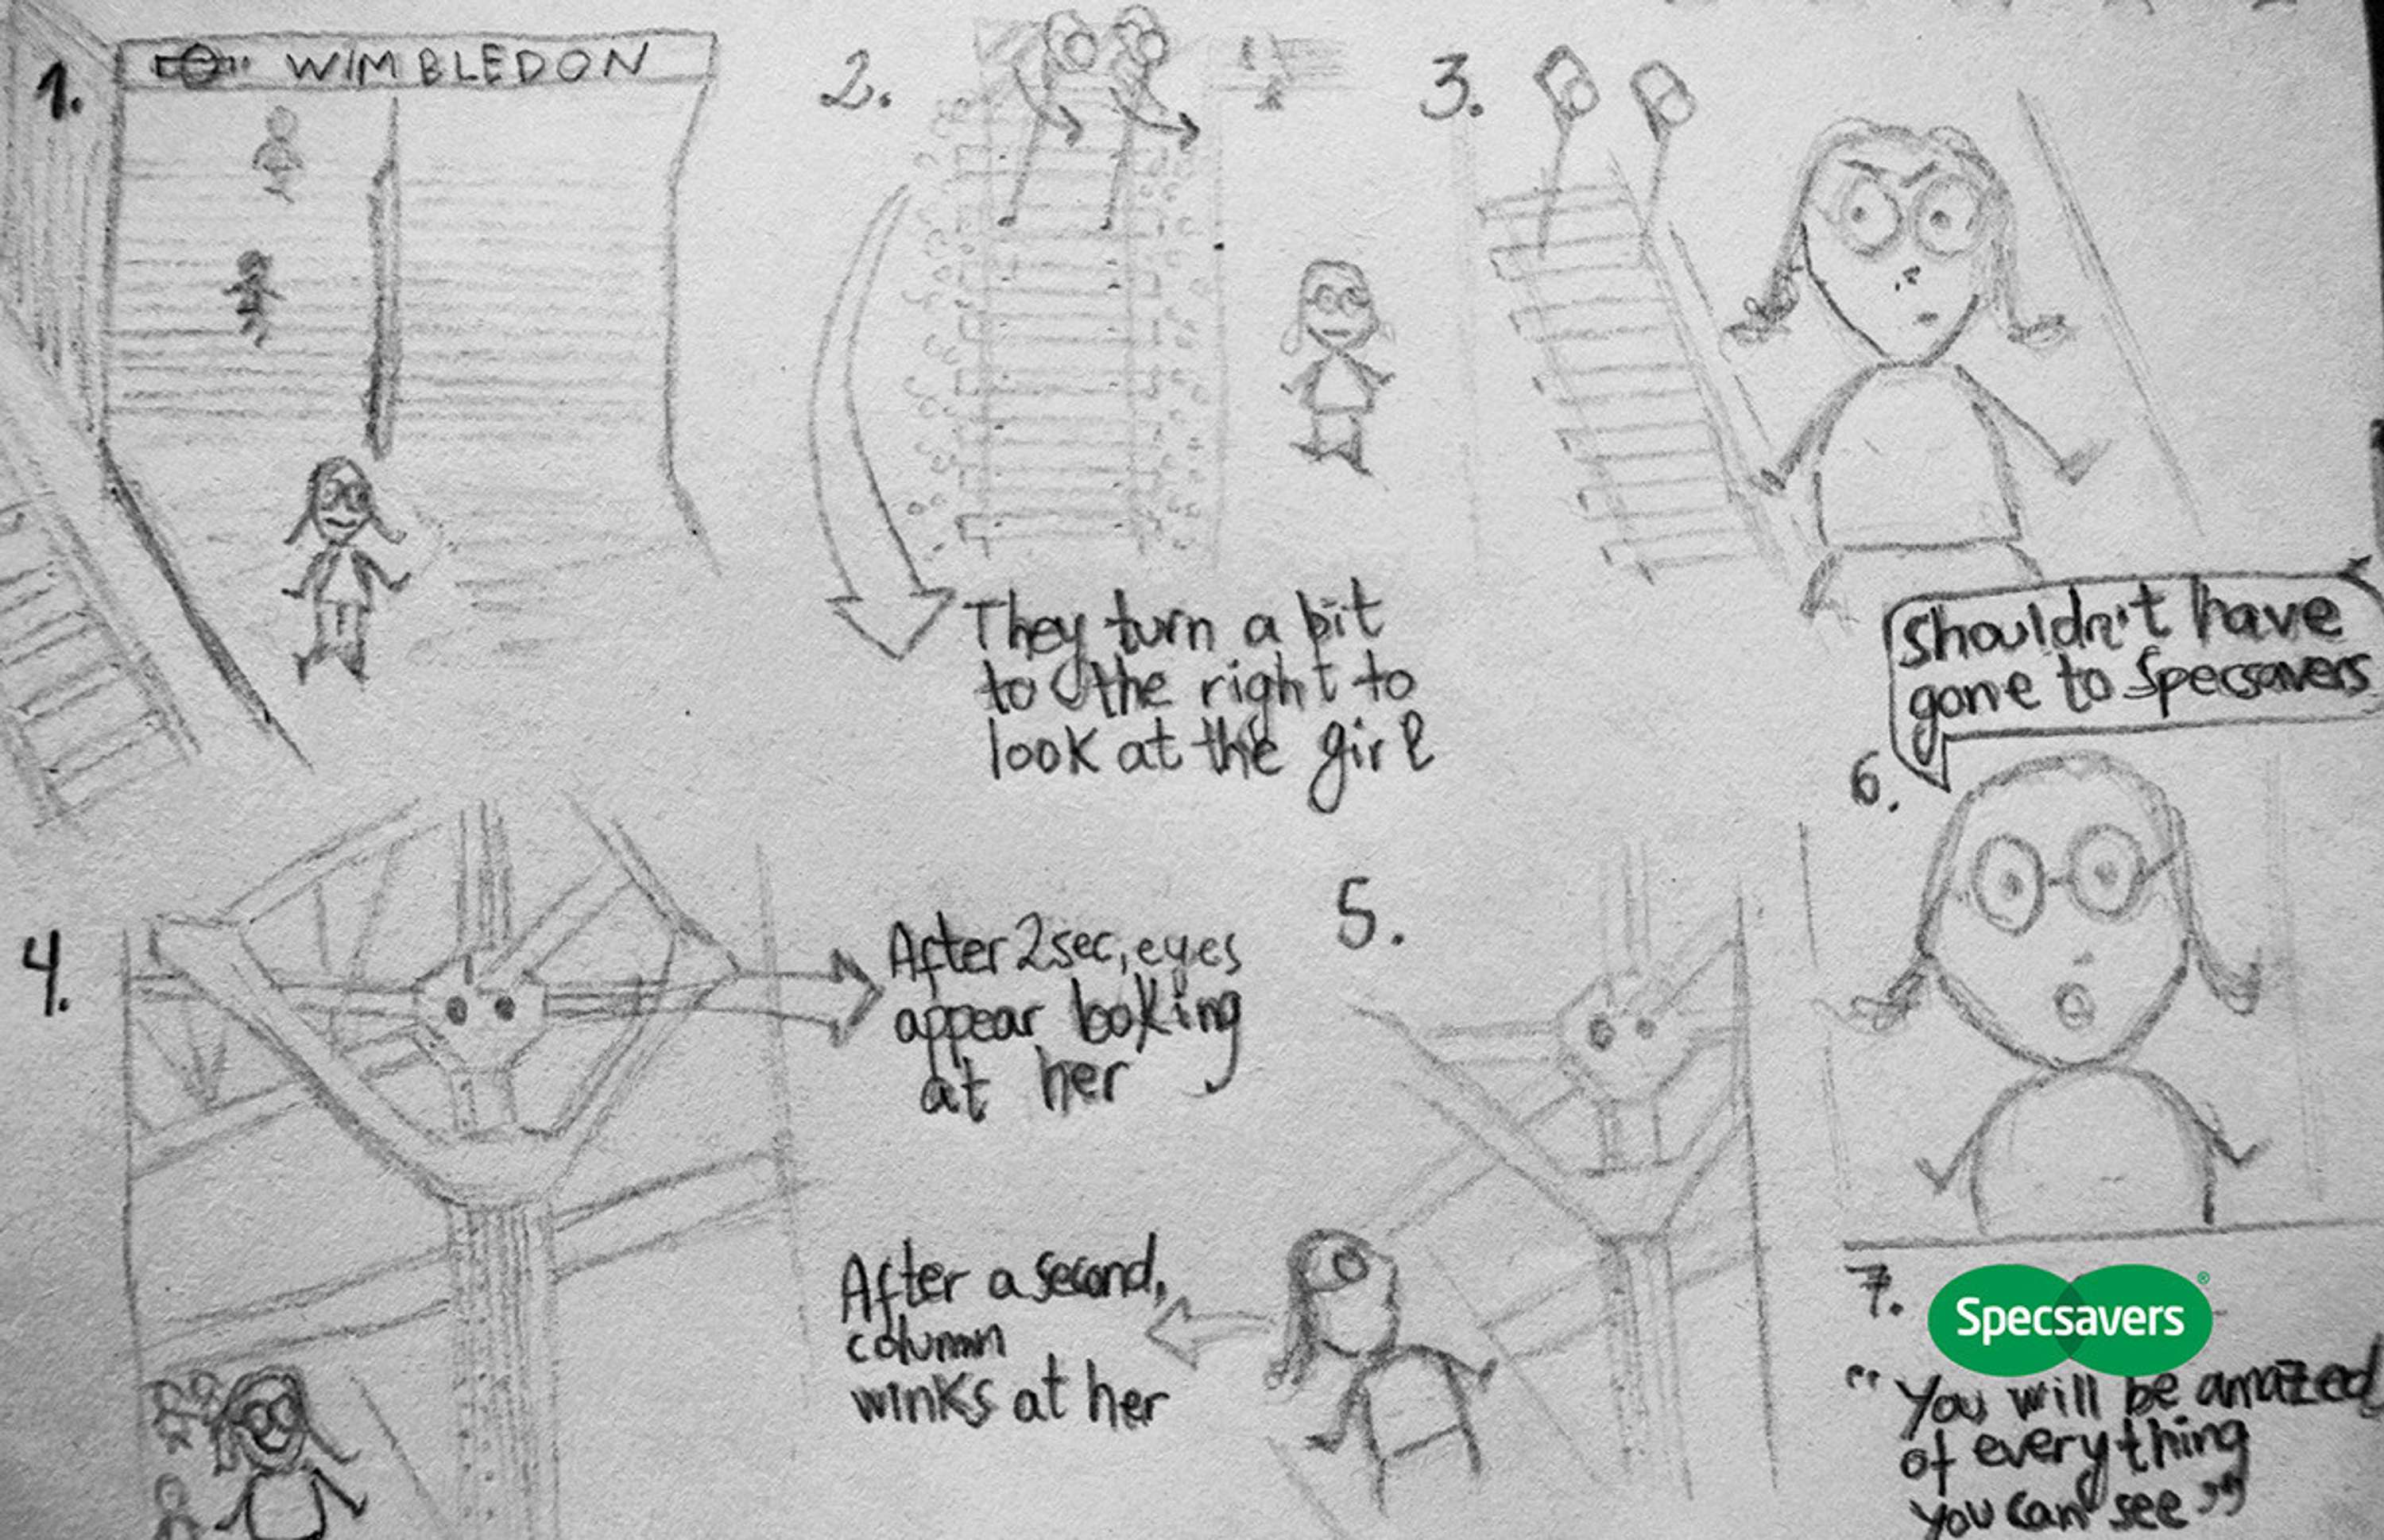 1.
WIMBLEDON
2.
They turn a bit
to the right to
look at the girl
3.
4.
After 2 sec, eyes
appear looking
at her
5.
After a second,
column
winks at her
6.
Shouldn't have
gone to Specsavers
7.
Specsavers®
"You will be amazed
of everything
you can see"